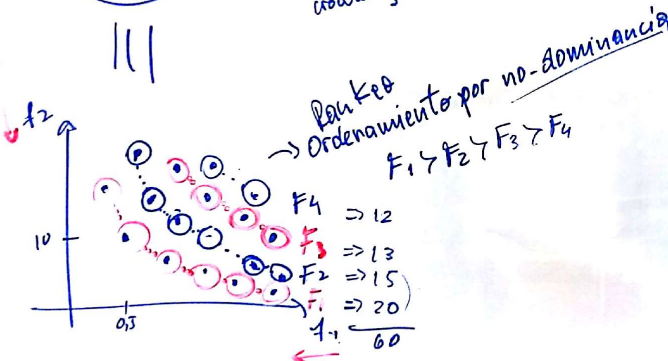 Rankeo
Ordenamiento por no-dominancia
F1 > F2 > F3 > F4
f2
10
0,5
F4 => 12
F3 => 13
F2 => 15
F1 => 20
60
f1